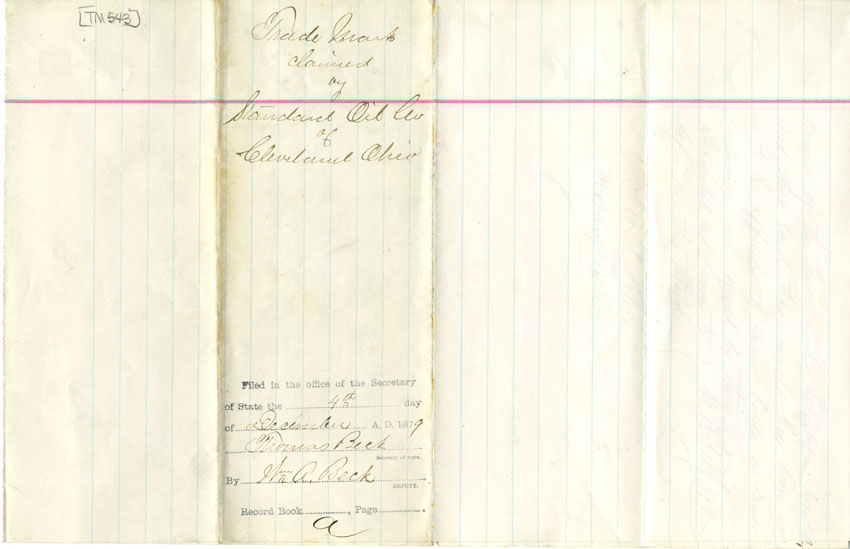 [TM 543]
Trade Mark
claimed
by
Standard Oil Co
of
Cleveland Ohio
Filed in the office of the Secretary
of State the 4th day
of December A. D. 1879
Thomas Beck
Secretary of State.
By Wm A. Beck
DEPUTY.
Record Book , Page .
a